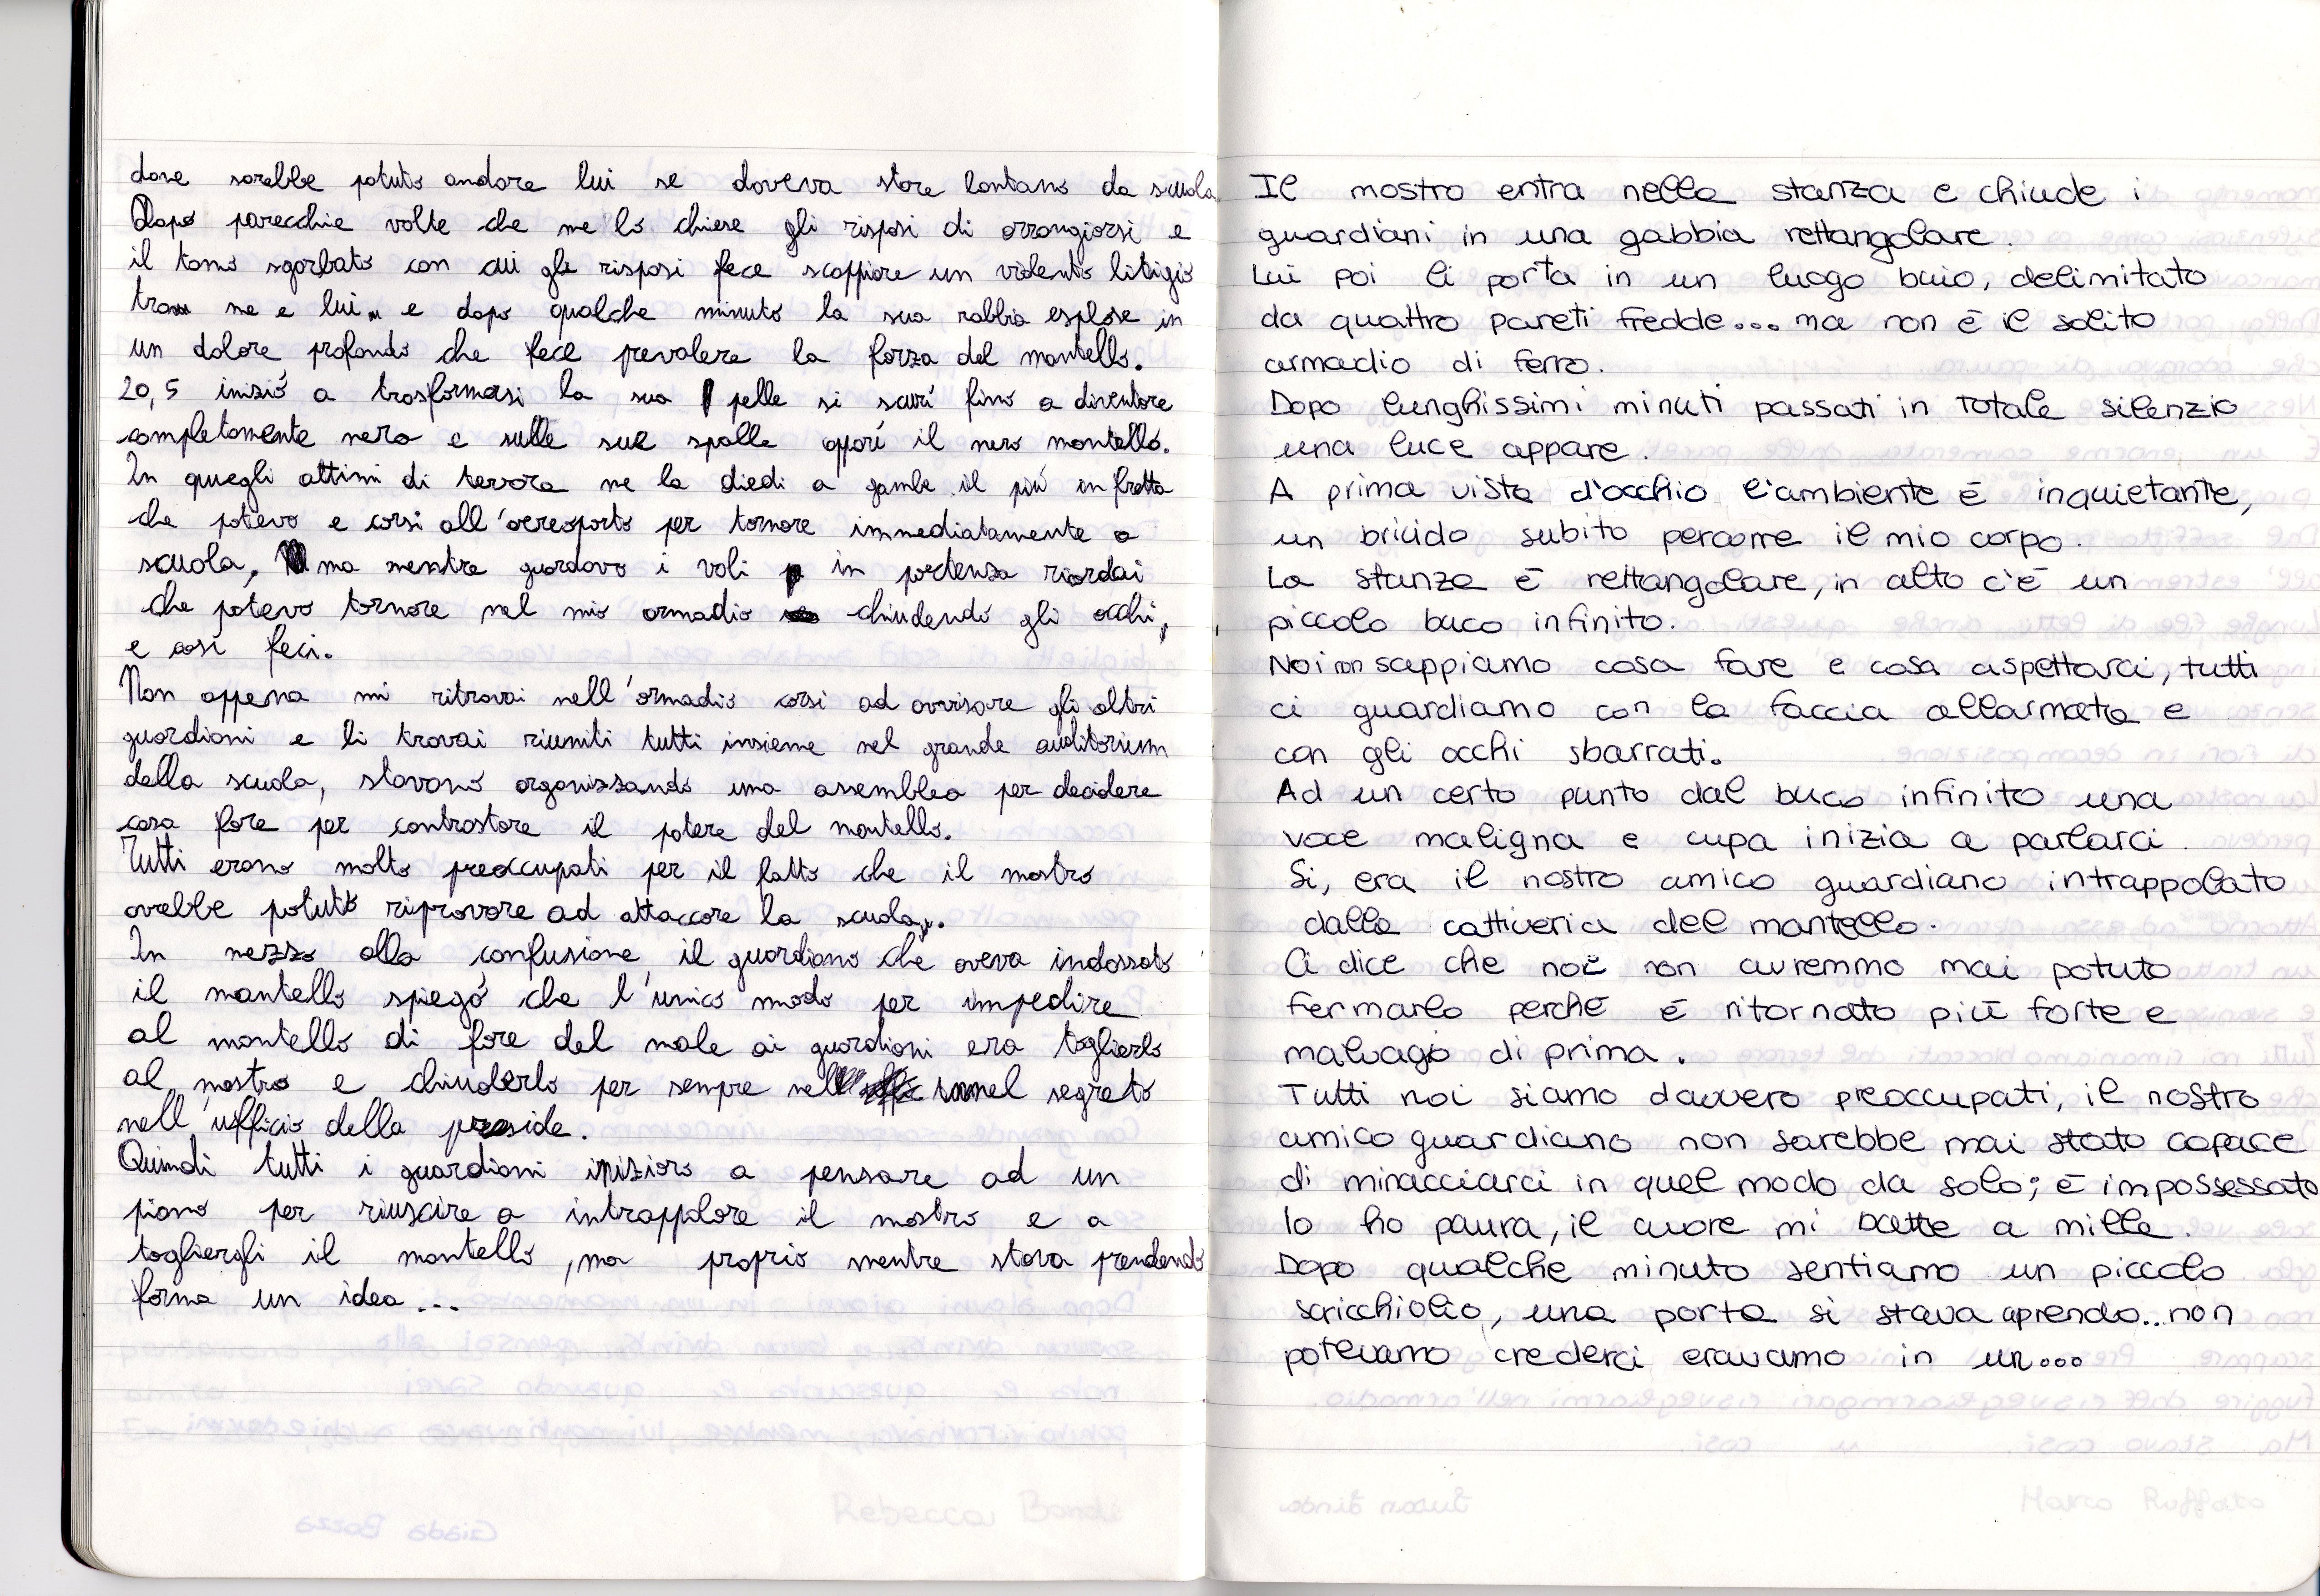 dove sarebbe potuto andare lui se doveva stare lontano da scuola.
Dopo parecchie volte che me lo chiese gli risposi di arrangiarsi e
il tono sgarbato con cui gli risposi fece scoppiare un violento litigio
tra me e lui e dopo qualche minuto la sua rabbia esplose in
un dolore profondo che fece prevalere la forza del mantello.
20,5 iniziò a trasformarsi la sua pelle si scurì fino a diventare
completamente nera e sulle sue spalle apparì il nero mantello.
In quegli attimi di terrore me la diedi a gambe il più in fretta
che potevo e corsi all'aereoporto per tornare immediatamente a
scuola, ma mentre guardavo i voli in partenza ricordai
che potevo tornare nel mio armadio chiudendo gli occhi,
e così feci.
Non appena mi ritrovai nell'armadio corsi ad avvisare gli altri
guardiani e li trovai riuniti tutti insieme nel grande auditorium
della scuola, stavano organizzando una assemblea per decidere
cosa fare per contrastare il potere del mantello.
Tutti erano molto preoccupati per il fatto che il mostro
avrebbe potuto riprovare ad attaccare la scuola.
In mezzo alla confusione, il guardiano che aveva indossato
il mantello spiegò che l'unico modo per impedire
al mantello di fare del male ai guardiani era toglierlo
al mostro e chiuderlo per sempre nel tunnel segreto
nell'ufficio della preside.
Quindi tutti i guardiani iniziaro a pensare ad un
piano per riuscire a intrappolare il mostro e a
togliergli il mantello, ma proprio mentre stava prendendo
forma un idea...
Il mostro entra nella stanza e chiude i
guardiani in una gabbia rettangolare.
Lui poi li porta in un luogo buio, delimitato
da quattro pareti fredde... ma non è il solito
armadio di ferro.
Dopo lunghissimi minuti passati in totale silenzio
una luce appare.
A prima vista d'occhio l'ambiente è inquietante,
un brivido subito percorre il mio corpo.
La stanza è rettangolare, in alto c'è un
piccolo buco infinito.
Noi non sappiamo cosa fare e cosa aspettarci, tutti
ci guardiamo con la faccia allarmata e
con gli occhi sbarrati.
Ad un certo punto dal buco infinito una
voce maligna e cupa inizia a parlarci.
Si, era il nostro amico guardiano intrappolato
dalla cattiveria del mantello.
Ci dice che noi non avremmo mai potuto
fermarlo perché è ritornato più forte e
malvagio di prima.
Tutti noi siamo davvero preoccupati, il nostro
amico guardiano non sarebbe mai stato capace
di minacciarci in quel modo da solo; è impossessato
Io ho paura, il cuore mi batte a mille.
Dopo qualche minuto sentiamo un piccolo
scricchiolio, una porta si stava aprendo... non
potevamo crederci eravamo in un...
Rebecca Bondi
Marco Ruffato